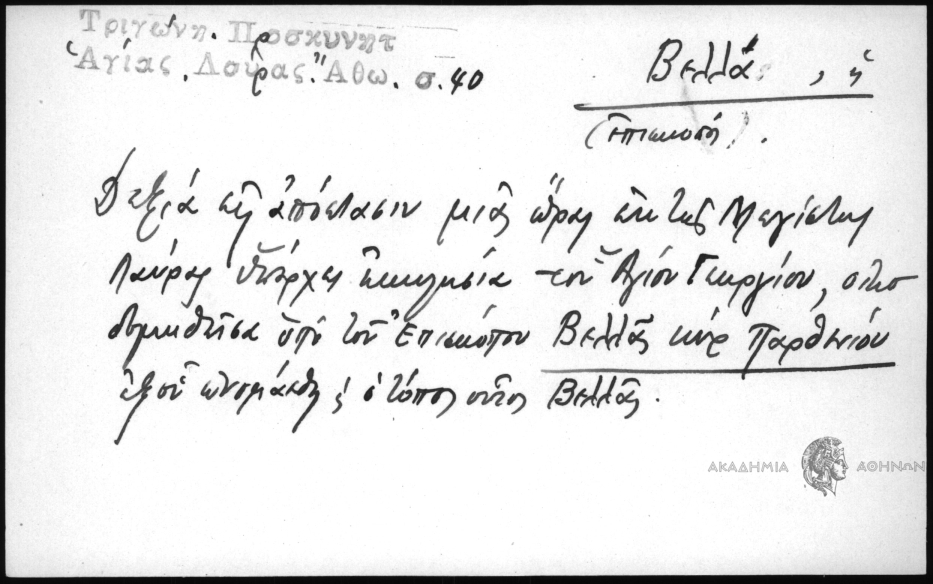 Τριγώνη. Προσκυνητ
Ἁγίας. Λαύρας. Ἄθω. σ. 40
Βελλᾶ, ἡ
(ἐπισκοπή).
Δεξιά εἰς ἀπόστασιν μιᾶς ὥρας ἐκ τῆς Μεγίστης
Λαύρας ὑπάρχει ἐκκλησία τοῦ Ἁγίου Γεωργίου, οἰκο
δομηθεῖσα ὑπό τοῦ Ἐπισκόπου Βελλᾶς κύρ Παρθενίου
ἐξ οὗ ὠνομάσθη ὁ τόπος οὗτος Βελλᾶς.
ΑΚΑΔΗΜΙΑ ΑΘΗΝΩΝ